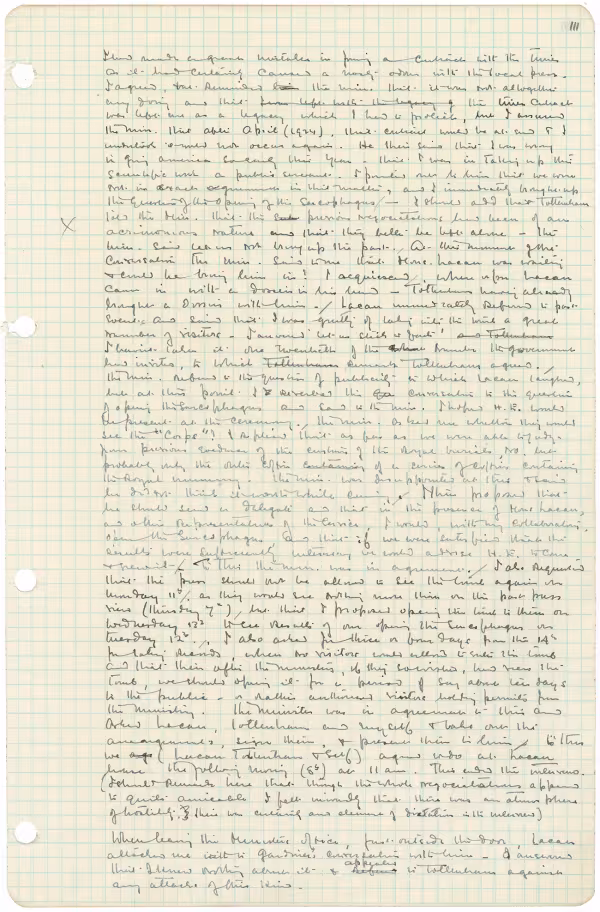 111
I had made a great mistake in giving a contract with the Times
as it had certainly caused a nasty odour with the local press.
I agreed, but reminded the Min. that it was not altogether
my doing and that of the Times contract
was left me as a legacy which I had to protect, but I assured
the Min. that after April (1924), that contract would be at end & I
would not occur again. He then said that I was wrong
in going America so early this year & that I was in taking up this
scientific work a public servant. I
not in agreement in this matter, and I immediately brought up
the question of the opening of the Sarcophagus. / I should add that Tottenham
told the Min. that the previous negotiations had been of an
X
acrimonious nature and that they better be left alone - the
Min. said let us not bring up the past. / At this moment of the
conversation the Min. said to me that Mons. Lacau was waiting
& could he bring him in? I acquiesced, whereupon Lacau
came in with a dossier in his hand - Tottenham having already
brought a dossier with him. / Lacau immediately referred to past
events and said that I was guilty of taking into the tomb a great
number of visitors - I answered
I having taken in one twentieth of the number the government
had invited, to which remark Tottenham agreed. /
The Min. referred to the question of publicity to which Lacau laughed,
but at this point I reverted the conversation to the question
of opening the Sarcophagus and said to the Min. I hoped H.E. would
be present at the ceremony. / The Min. asked me whether they would
see the "Corpse"? I replied that as far as we were able to judge
from previous evidence of the customs of the Royal burials, no. but
probably only the outer coffin containing of a series of coffins containing
the Royal mummy. The Min. was disappointed at this & said
he did not think it worth while coming. / I then proposed that
he should send a delegate and that in the presence of Mons Lacau,
and other representatives of the Service, I would, with my collaborators,
open the Sarcophagus. And that if we were satisfied that the
results were sufficiently interesting we would advise H.E. to come
& see it - To this the Min. was in agreement. / I also suggested
that the press should not be allowed to see the tomb again on
Monday 11th as they would see nothing more than on the past press
view (Thursday 7th), but that I proposed opening the tomb to them on
Wednesday 13th to see results of our opening the Sarcophagus on
Tuesday 12th. / I also asked for three or four days from the 14th
for taking records, when no visitors would be allowed to enter the tomb
and that then after the ministers, if they so wished, had seen the
tomb, we should open it for a period of say about ten days
to the public - or rather authorised visitors holding permits from
the Ministry. The Minister was in agreement to this and
asked Lacau, Tottenham and myself to take out the
arrangements, sign them, & present them to him / To this
we (Lacau Tottenham & self) agreed to do at Lacau
house the following morning (8th) at 11 am. This ended the interview.
(I should remark here that though the whole negotiations appeared
to be quite amicable I felt inwardly that there was an atmosphere
of hostility, & there was certainly an element of in the interview)
When leaving the Ministers office, just outside the door, Lacau
attacked me with Gardiner's conversation with him - I answered
that I knew nothing about it & appealed to Tottenham against
any attacks of this kind.